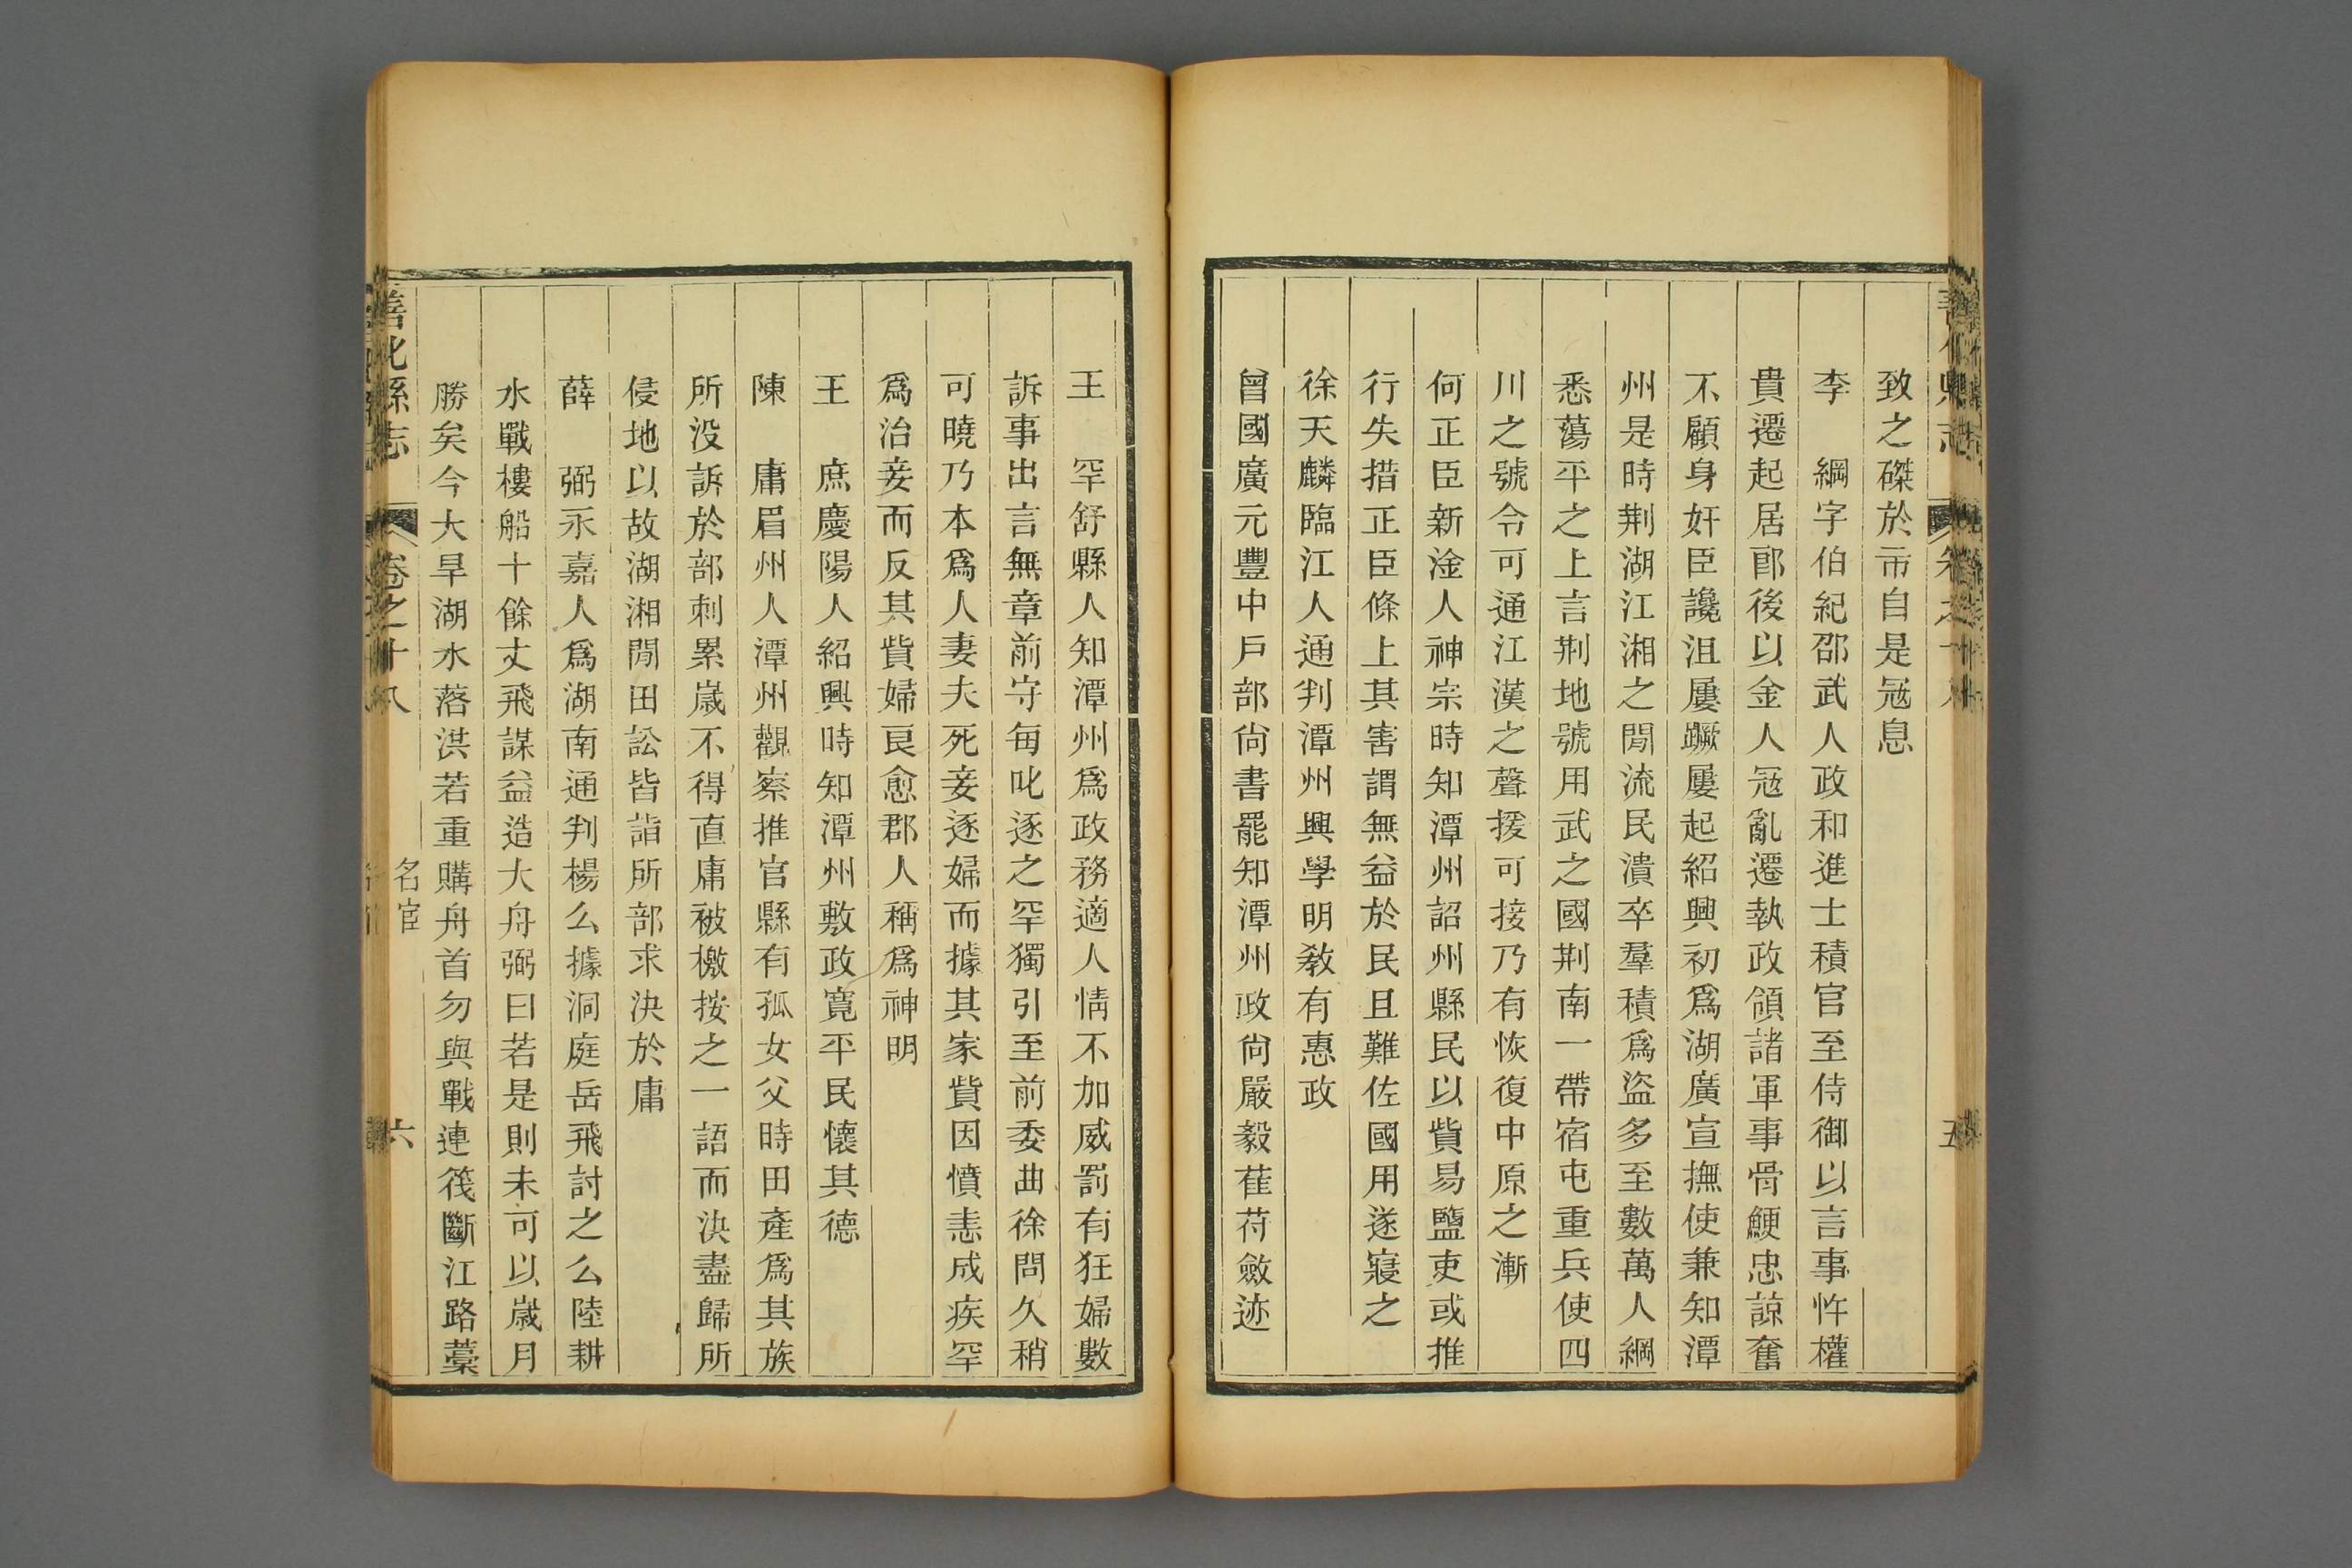 致之磔於市自是冦息
李　綱字伯紀邵武人政和進士積官至侍御以言事忤權
貴遷起居郎後以金人冦亂遷執政領諸軍事骨鯁忠諒奮
不顧身奸臣讒沮屢蹶屢起紹興初爲湖廣宣撫使兼知潭
州是時荆湖江湘之閒流民潰卒羣積爲盜多至數萬人綱
悉蕩平之上言荆地號用武之國荆南一帶宿屯重兵使四
川之號令可通江漢之聲援可接乃有恢復中原之漸
何正臣新淦人神宗時知潭州詔州縣民以貲易鹽吏或推
行失措正臣條上其害謂無益於民且難佐國用遂寢之
徐天麟臨江人通判潭州興學明敎有惠政
曾國廣元豐中戸部尙書罷知潭州政尙嚴毅萑苻斂迹
五
王　罕舒縣人知潭州爲政務適人情不加威罰有狂婦數
訴事出言無章前守每叱逐之罕獨引至前委曲徐問久稍
可曉乃本爲人妻夫死妾逐婦而據其家貲因憤恚成疾罕
爲治妾而反其貲婦良愈郡人稱爲神明
王　庶慶陽人紹興時知潭州敷政寬平民懷其德
陳　庸眉州人潭州觀察推官縣有孤女父時田產爲其族
所没訴於部刺累歲不得直庸被檄按之一語而決盡歸所
侵地以故湖湘閒田訟皆詣所部求決於庸
薛　弼永嘉人爲湖南通判楊么據洞庭岳飛討之么陸耕
水戰樓船十餘丈飛謀益造大舟弼曰若是則未可以歲月
勝矣今大旱湖水落洪若重購舟首勿與戰連筏斷江路藁
善化縣志　卷之十八　名宦　六